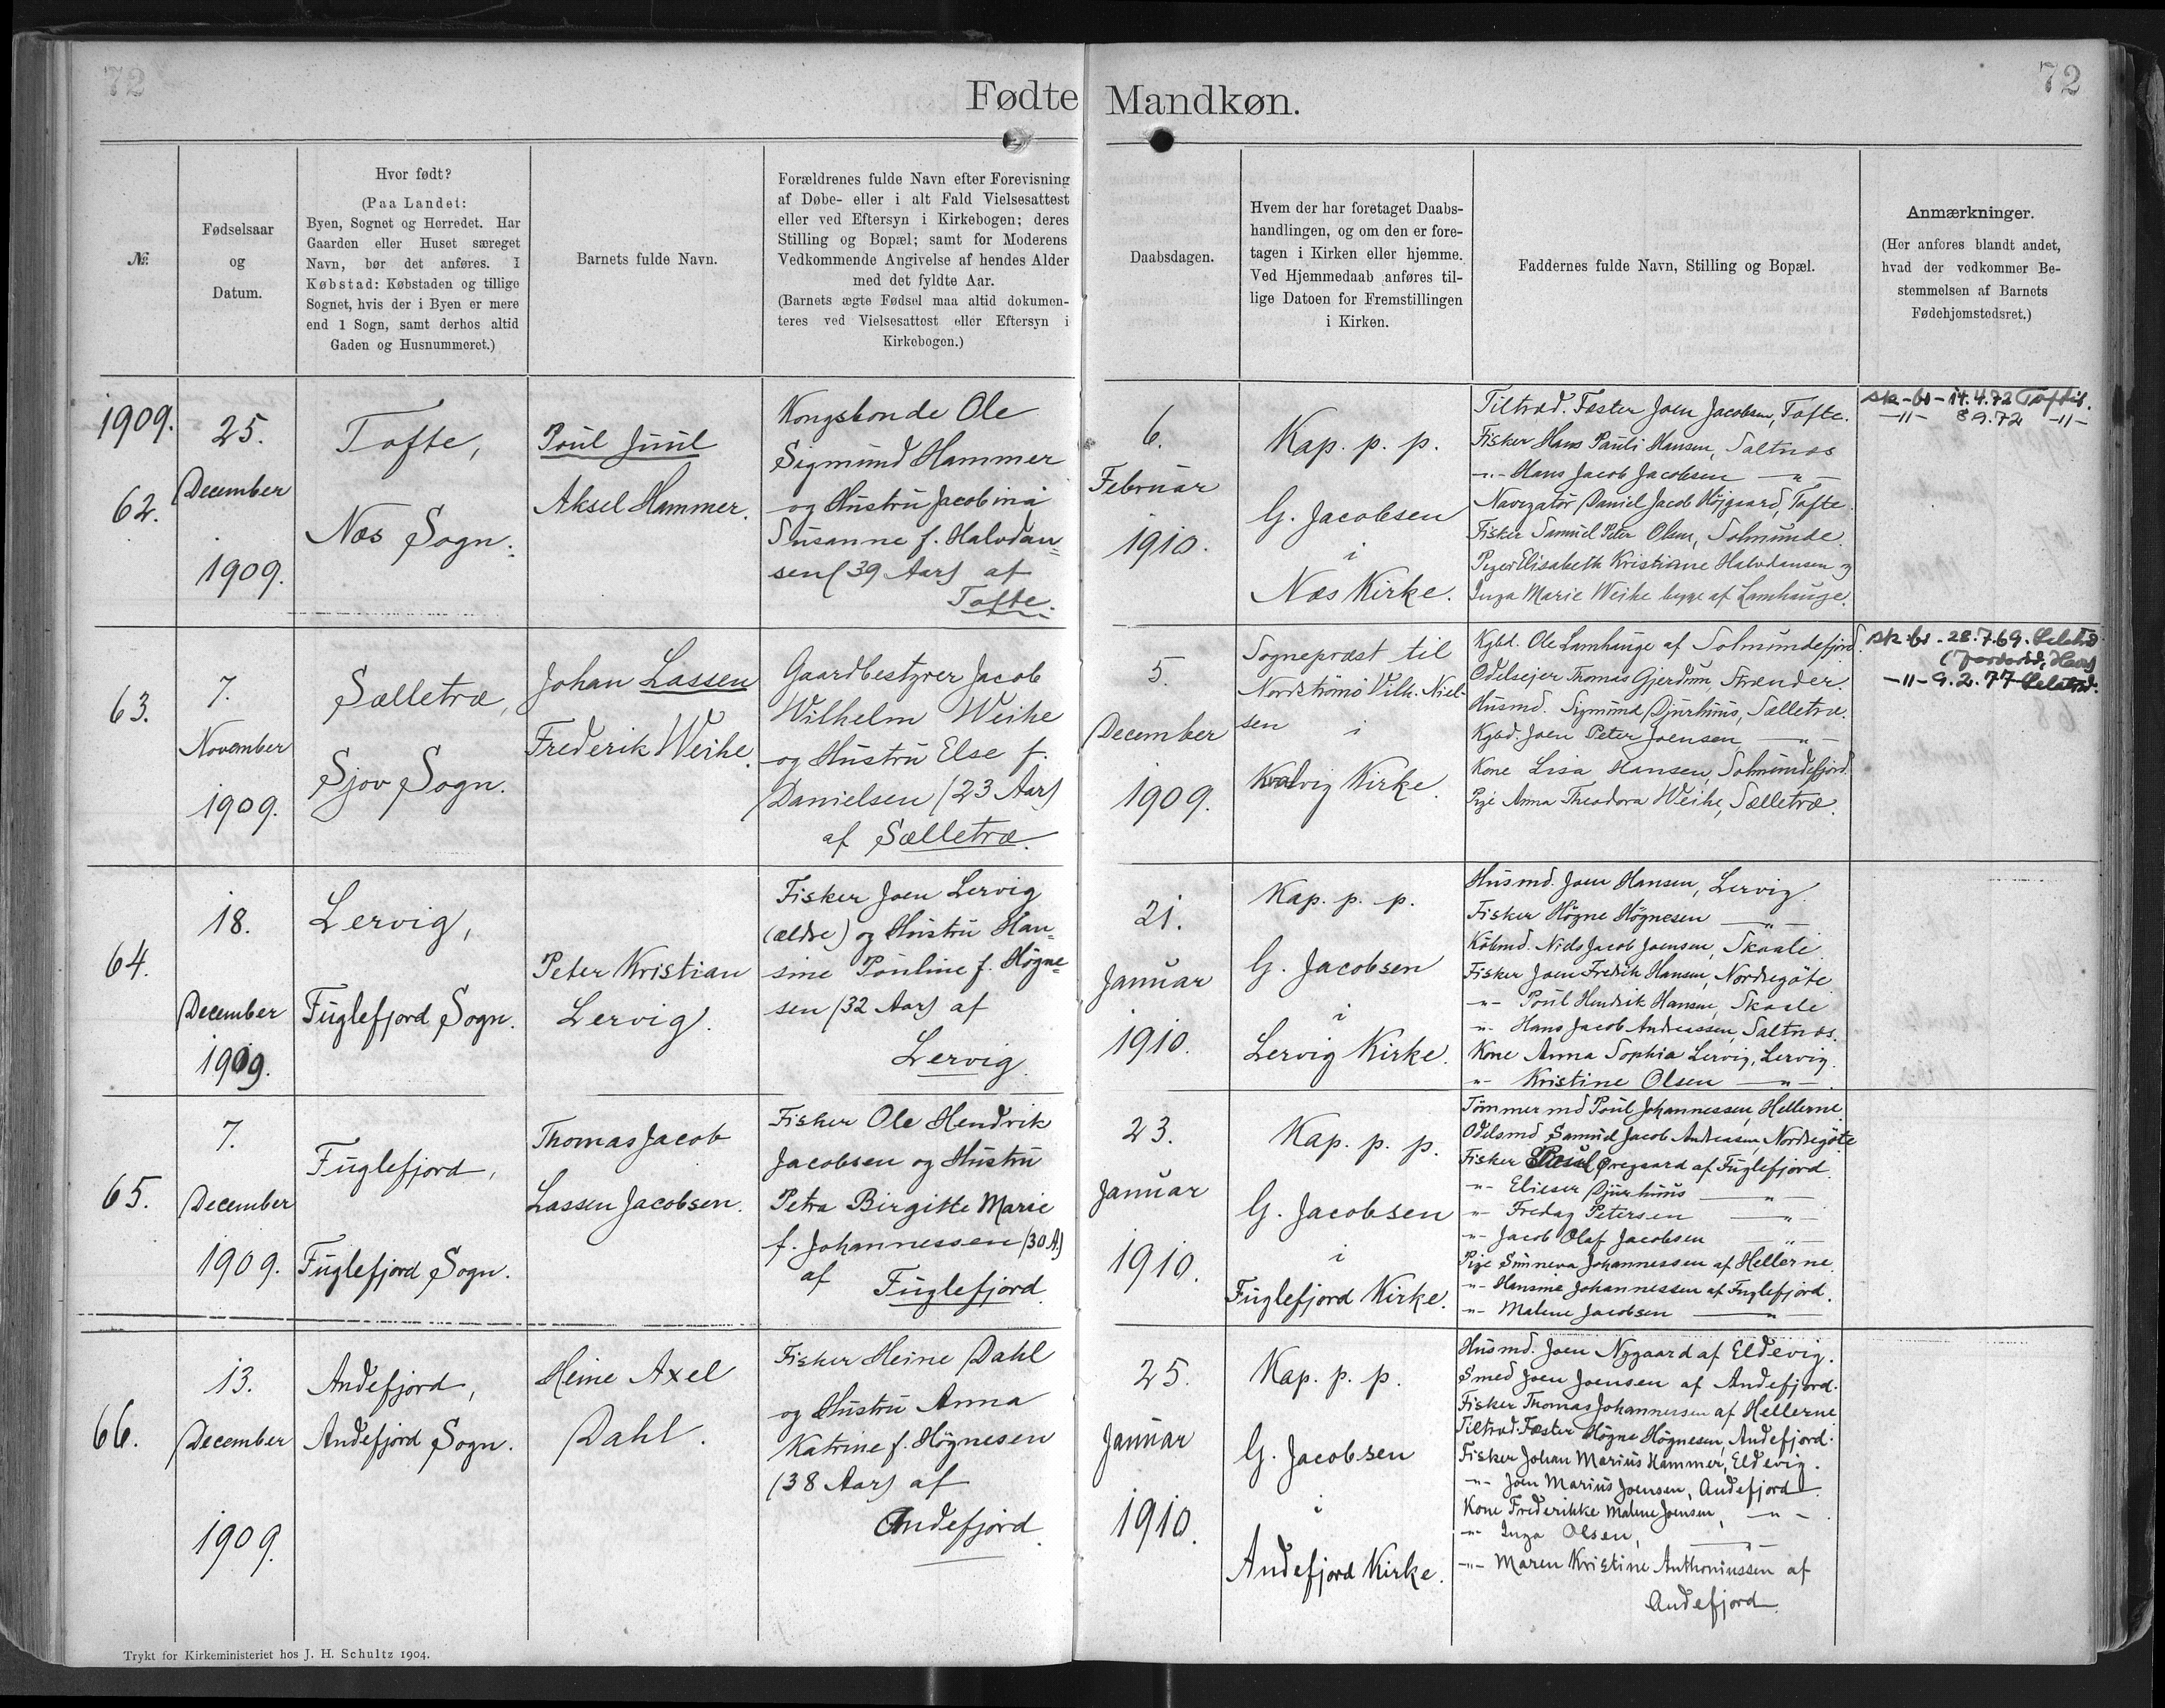 72
Fødte
Mandkøn.
72
№
Fødselsaar
og
Datum.
Hvor født?
(Paa Landet:
Byen, Sognet og Herredet. Har
Gaarden eller Huset særeget
Navn, bør det anføres. I
Købstad: Købstaden og tillige
Sognet, hvis der i Byen er mere
end 1 Sogn, samt derhos altid
Gaden og Husnummeret.)
Barnets fulde Navn.
Forældrenes fulde Navn efter Forevisning
af Døbe- eller i alt Fald Vielsesattest
eller ved Eftersyn i Kirkebogen; deres
Stilling og Bopæl; samt for Moderens
Vedkommende Angivelse af hendes Alder
med det fyldte Aar.
(Barnets ægte Fødsel maa altid dokumen-
teres ved Vielsesattest eller Eftersyn i
Kirkebogen.)
Daabsdagen.
Hvem der har foretaget Daabs-
handlingen, og om den er fore-
tagen i Kirken eller hjemme.
Ved Hjemmedaab anføres til-
lige Datoen for Fremstillingen
i Kirken.
Faddernes fulde Navn, Stilling og Bopæl.
Anmærkninger.
(Her anføres blandt andet,
hvad der vedkommer Be-
stemmelsen af Barnets
Fødehjemstedsret.)
1909.
62.
25.
December
1909.
Tofte,
Næs Sogn.
Poul Juul
Aksel Hammer.
Kongsbonde Ole
Sigmund Hammer
og Hustru Jacobina
Susanne f. Halvdan=
sen (39 Aar) af
Tofte.
6.
Februar
1910.
Kap. p. p.
G. Jacobsen
i
Næs Kirke.
Tiltræd. Fæster Joen Jacobsen, Tofte.
Fisker Hans Pauli Hansen, Saltnæs
-"- Hans Jacob Jacobsen -"-
Navigatør Daniel Jacob Højgaard, Tofte.
Fisker Samuel Peter Olsen, Solmunde.
Piger Elisabeth Kristiane Halvdansen og
Inga Marie Weihe begge af Lamhauge.
sk-br-14.4.72 Toftir.
-"- 8 9.72 -"-
63.
7.
November
1909.
Sælletræ,
Sjov Sogn.
Johan Lassen
Frederik Weihe.
Gaardbestyrer Jacob
Wilhelm Weihe
og Hustru Else f.
Danielsen (23 Aar)
af Sælletræ.
5.
December
1909.
Sognepræst til
Nordstrømø Vilh. Niel-
sen i
Kvalvig Kirke.
Kgbd. Ole Lamhauge af Solmundefjord.
Odelsejer Thomas Gjerdum, Strænder.
Husmd. Sigmund Djurhuus, Sælletræ.
Kgbd. Joen Peter Joensen -"-
Kone Lisa Hansen, Solmundefjord.
Pige Anna Theodora Weihe, Sælletræ.
sk-br. 28.7.69.
-"- 9.2.77
64.
18.
December
1909.
Lervig,
Fuglefjord Sogn.
Peter Kristian
Lervig.
Fisker Joen Lervig
(ældre) og Hustru Han=
sine Pouline f. Høgne=
sen (32 Aar) af
Lervig.
21.
Januar
1910.
Kap. p. p.
G. Jacobsen
i
Lervig Kirke.
Husmd. Joen Hansen, Lervig.
Fisker Høgne Høgnesen -"-
Købmd. Niels Jacob Joensen, Skaale.
Fisker Joen Fredrik Hansen, Nordregøte.
-"- Poul Hendrik Hansen, Skaale
-"- Hans Jacob Andreassen, Saltnæs.
Kone Anna Sophia Lervig, Lervig.
-"- Kristine Olsen -"-
65.
7.
December
1909.
Fuglefjord,
Fuglefjord Sogn.
Thomas Jacob
Lassen Jacobsen.
Fisker Ole Hendrik
Jacobsen og Hustru
Petra Birgitte Marie
f. Johannessen (30 A.)
af
Fuglefjord.
23.
Januar
1910.
Kap. p. p.
G. Jacobsen
i
Fuglefjord Kirke.
Tømmermd Poul Johannessen, Hellerne.
Odelsmd Samuel Jacob Andreasen, Nordregøte
Fisker Poul Øregaard af Fuglefjord.
-"- Elieser Djurhuus -"-
-"- Fredag Petersen -"-
-"- Jacob Olaf Jacobsen -"-
Pige Sunneva Johannessen af Hellerne.
-"- Hansine Johannessen af Fuglefjord.
-"- Malene Jacobsen -"-
66.
13.
December
1909.
Andefjord,
Andefjord Sogn.
Heine Axel
Dahl.
Fisker Heine Dahl
og Hustru Anna
Katrine f. Høgnesen
(38 Aar) af
Andefjord.
25.
Januar
1910.
Kap. p. p.
G. Jacobsen
i
Andefjord Kirke.
Husmd. Joen Nygaard af Eldevig.
Smed Joen Joensen af Andefjord.
Fisker Thomas Johannessen af Hellerne
Tiltræd. Fæster Høgne Høgnesen, Andefjord.
Fisker Johan Marius Hammer, Eldevig.
-"- Joen Marius Joensen, Andefjord.
Kone Frederikke Malene Joensen, -"-
-"- Inga Olsen, -"-
-"- Maren Kristine Anthoniussen af
Andefjord.
Trykt for Kirkeministeriet hos J. H. Schultz 1904.